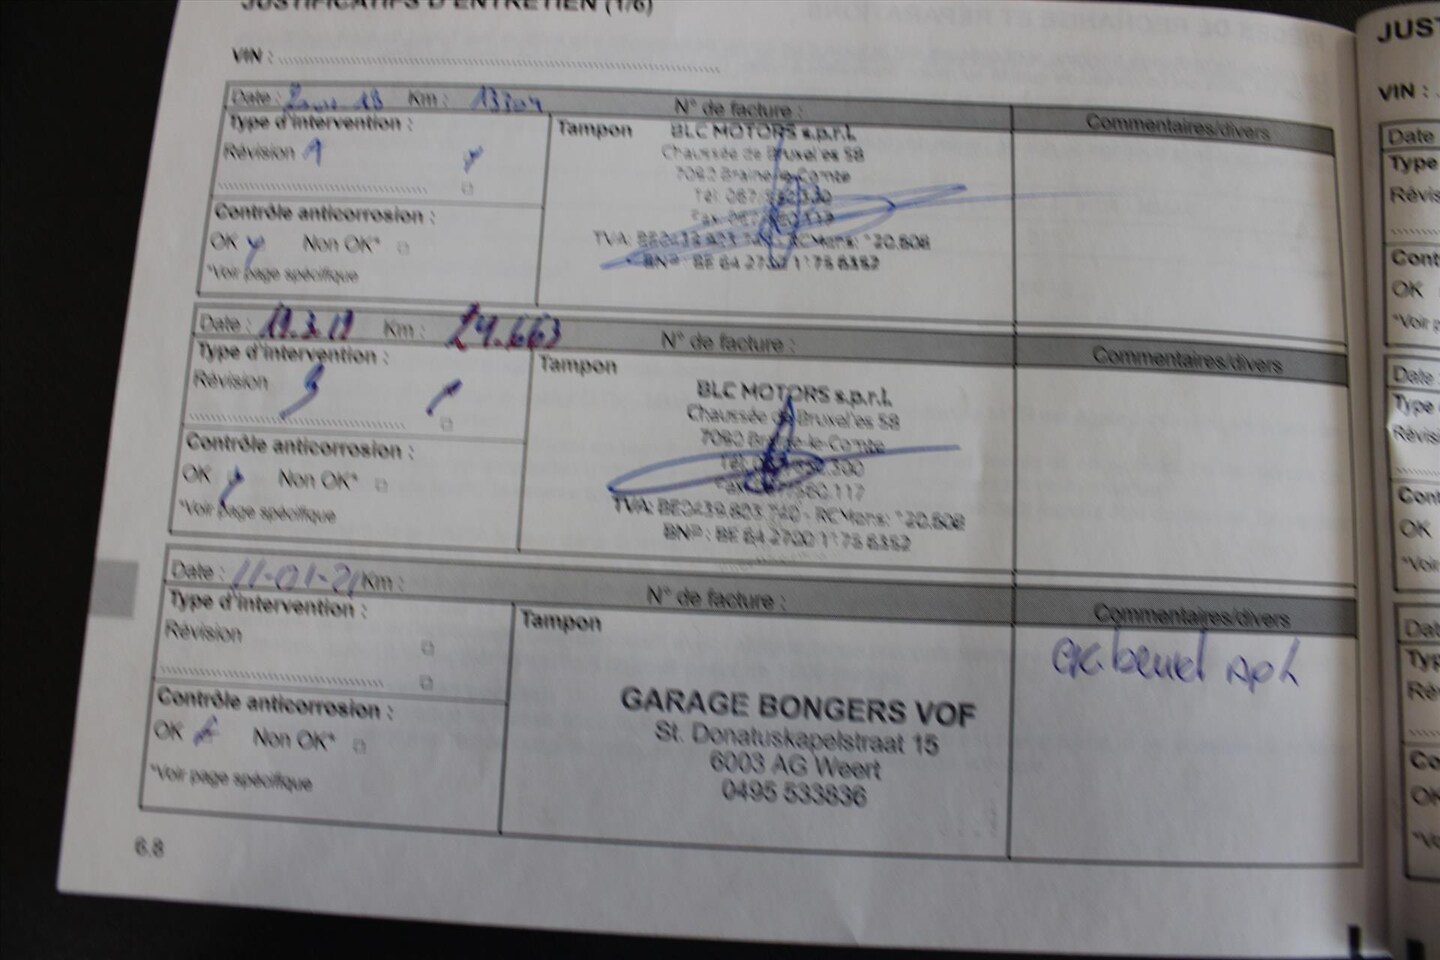 JUSTIFICATIFS D'ENTRETIEN (1/6)
VIN :
Date : Km : 13304 N° de facture : Commentaires/divers
Type d'intervention :
Révision 1
Contrôle anticorrosion :
OK Non OK*
*Voir page spécifique
Tampon
BLC MOTORS s.p.r.l.
Chaussée de Bruxelles 58
7090 Braine-le-Comte
Tél.
Fax
TVA: RCMons: 120.608
BNP : BE 64 2700 1175 6352
Date : 19.3.19 Km : 24.663 N° de facture : Commentaires/divers
Type d'intervention :
Révision
Contrôle anticorrosion :
OK Non OK*
*Voir page spécifique
Tampon
BLC MOTORS s.p.r.l.
Chaussée de Bruxelles 58
7090 Braine-le-Comte
Tél.
Fax
TVA: BE0439.803.740 - RCMons: 120.608
BNP : BE 64 2700 1175 6352
Date : 11-01-21 Km : N° de facture : Commentaires/divers
Type d'intervention :
Révision
Contrôle anticorrosion :
OK Non OK*
*Voir page spécifique
Tampon
GARAGE BONGERS VOF
St. Donatuskapelstraat 15
6003 AG Weert
0495 533836
beurt
6.8
JUST
VIN :
Date
Type
Révis
Cont
OK
*Voir
Date
Type
Révis
Cont
OK
*Voir
Dat
Typ
Ré
Co
OK
*Vo